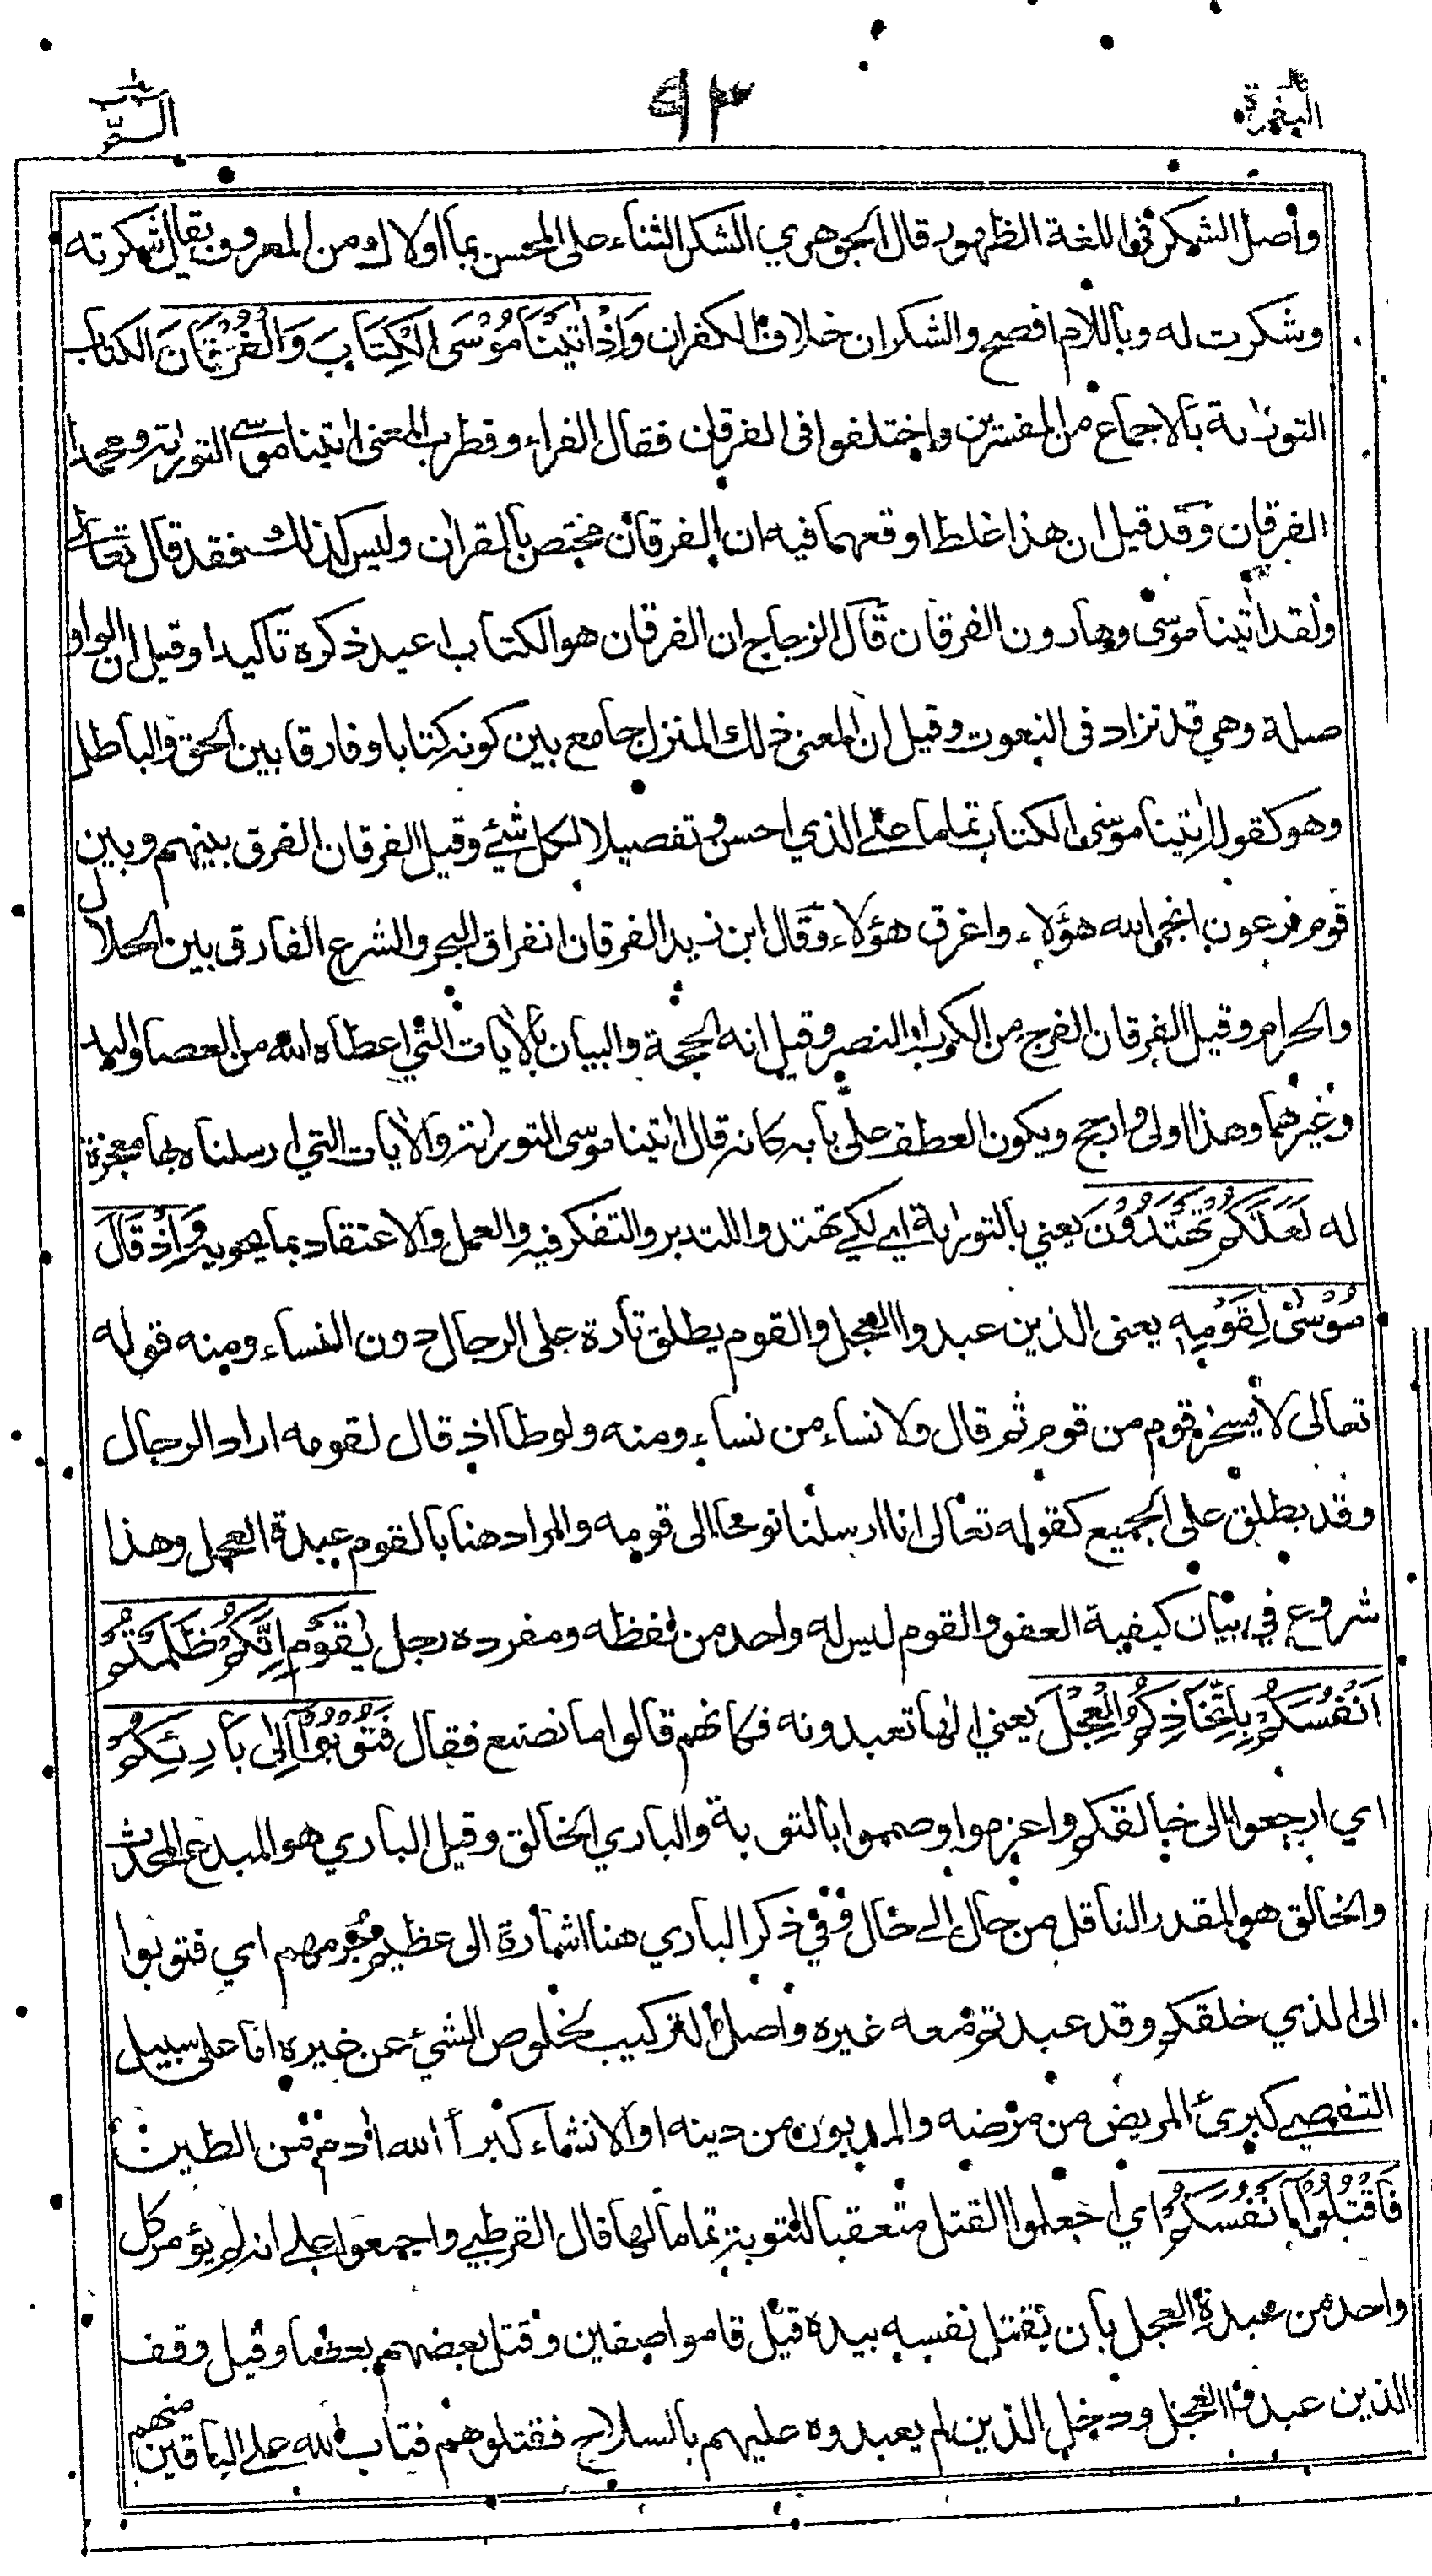 البقرة ٩٣ الٓمّٓ
وأصل الشكر في اللغة الظهور قال الجوهري الشكر الثناء على المحسن بما اولاك من المعروف يقال شكرته
وشكرت له وباللام افصح والشكران خلاف الكفران وَاِذْ اٰتَيْنَا مُوْسَى الْكِتَابَ وَالْفُرْقَانَ الكتاب
التوراة بالاجماع من المفسرين واختلفوا في الفرقان فقال الفراء وقطرب المعنى اٰتينا موسى التوراة ومحمدا
الفرقان وقد قيل ان هذا غلط اوقعهما فيه ان الفرقان مختص بالقراٰن وليس كذلك فقد قال تعالى
ولقد اٰتينا موسى وهارون الفرقان قال الزجاج ان الفرقان هو الكتاب اعيد ذكره تاكيدا وقيل ان الواو
صلة وهي قد تزاد في النعوت وقيل ان المعنى ذلك المنزل جامع بين كونه كتابا وفارقا بين الحق والباطل
وهو كقوله اٰتينا موسى الكتاب تماما على الذي احسن وتفصيلا لكل شئ وقيل الفرقان الفرق بينهم وبين
قوم فرعون انجى الله هؤلاء واغرق هؤلاء وقال ابن زيد الفرقان انفراق البحر والشرع الفارق بين الحلال
والحرام وقيل الفرقان الفرج من الكرب والنصر وقيل انه الحجة والبيان بالاٰيات التي اعطاه الله من العصا واليد
وغيرهما وهذا اولى وارجح ويكون العطف على بابه كانه قال اٰتينا موسى التوراة والاٰيات التي ارسلناه بها معجزة
له لَعَلَّكُمْ تَهْتَدُوْنَ يعني بالتوراة اي لكي تهتدوا بالتدبر والتفكر فيه والعمل والاعتقاد بما يحويه وَاِذْ قَالَ
مُوْسٰى لِقَوْمِهٖ يعني الذين عبدوا العجل والقوم يطلق تارة على الرجال دون النساء ومنه قوله
تعالى لا يسخر قوم من قوم ثم قال ولا نساء من نساء ومنه ولوطا اذ قال لقومه اراد الرجال
وقد يطلق على الجميع كقوله تعالى انا ارسلنا نوحا الى قومه والمراد هنا بالقوم عبدة العجل وهذا
شروع في بيان كيفية العفو والقوم ليس له واحد من لفظه ومفرده رجل يٰقَوْمِ اِنَّكُمْ ظَلَمْتُمْ
اَنْفُسَكُمْ بِاتِّخَاذِكُمُ الْعِجْلَ يعني الٰها تعبدونه فكانهم قالوا ما نصنع فقال فَتُوْبُوْٓا اِلٰى بَارِئِكُمْ
اي ارجعوا الى خالقكم واعزموا وصمموا بالتوبة والباري الخالق وقيل الباري هو المبدع المحدث
والخالق هو المقدر الناقل من حال الى حال وفي ذكر الباري هنا اشارة الى عظيم جرمهم اي فتوبوا
الى الذي خلقكم وقد عبدتم معه غيره واصل التركيب لخلوص الشئ عن غيره اما على سبيل
التفصي كبرئ المريض من مرضه والمديون من دينه او الانشاء كبرأ الله اٰدم من الطين
فَاقْتُلُوْٓا اَنْفُسَكُمْ اي اجعلوا القتل متعقبا للتوبة تماما لها قال القرطبي واجمعوا على انه لم يؤمر كل
واحد من عبدة العجل بان يقتل نفسه بيده قيل قاموا صفين وقتل بعضهم بعضا وقيل وقف
الذين عبدوا العجل ودخل الذين لم يعبدوه عليهم بالسلاح فقتلوهم فتاب الله على الباقين منهم